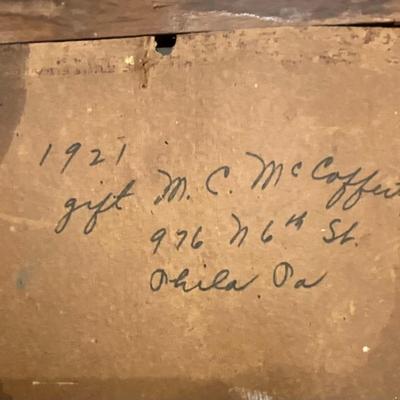 1921
gift M. C. McCaffert
976 N 6th St.
Phila Pa